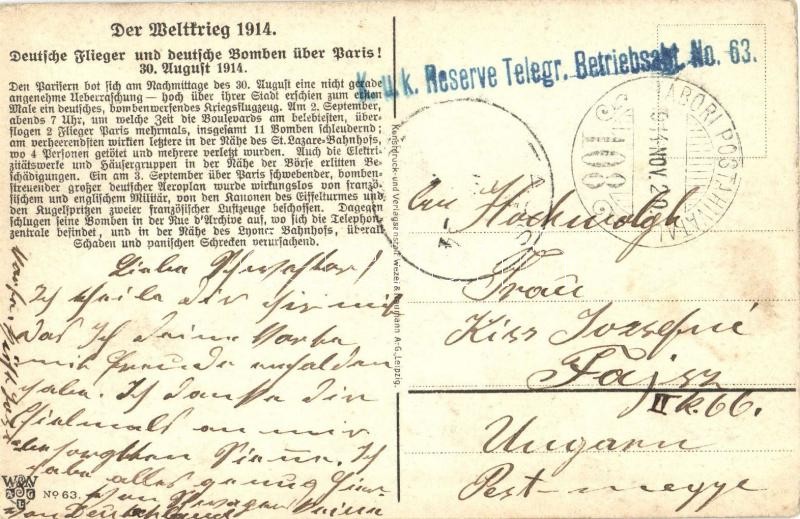 Der Weltkrieg 1914.
Deutsche Flieger und deutsche Bomben über Paris!
30. August 1914.
Den Parisern bot sich am Nachmittage des 30. August eine nicht gerade
angenehme Ueberraschung — hoch über ihrer Stadt erschien zum ersten
Male ein deutsches, bombenwerfendes Kriegsflugzeug. Am 2. September,
abends 7 Uhr, um welche Zeit die Boulevards am belebtesten, über-
flogen 2 Flieger Paris mehrmals, insgesamt 11 Bomben schleudernd;
am verheerendsten wirkten letztere in der Nähe des St. Lazare-Bahnhofs,
wo 4 Personen getötet und mehrere verletzt wurden. Auch die Elektri-
zitätswerke und Häusergruppen in der Nähe der Börse erlitten Be-
schädigungen. Ein am 3. September über Paris schwebender, bomben-
streuender großer deutscher Aeroplan wurde wirkungslos von franzö-
sischem und englischem Militär, von den Kanonen des Eiffelturmes und
den Kugelspritzen zweier französischer Luftzeuge beschossen. Dagegen
schlugen seine Bomben in der Rue d'Archive auf, wo sich die Telephon-
zentrale befindet, und in der Nähe des Lyoner Bahnhofs, überall
Schaden und panischen Schrecken verursachend.
Liebe Schwester!
Ich theile dir hiermit
das Ich deine Karte
mit Freude erhalden
habe. Ich danke dir
Vielmals an mir
Ich
habe alles genug hier
von Deutschland
W&N
A G
L
No 63.
Kunstdruck- und Verlagsanstalt Wezel & Naumann A.-G., Leipzig.
K. u. k. Reserve Telegr. Betriebsabt. No. 63.
TABORI POSTAHIVATAL
914 NOV. 20
108
Frau
Kiss Jozsefné
Fajsz
II k. 66.
Ungarn
Pest-megye